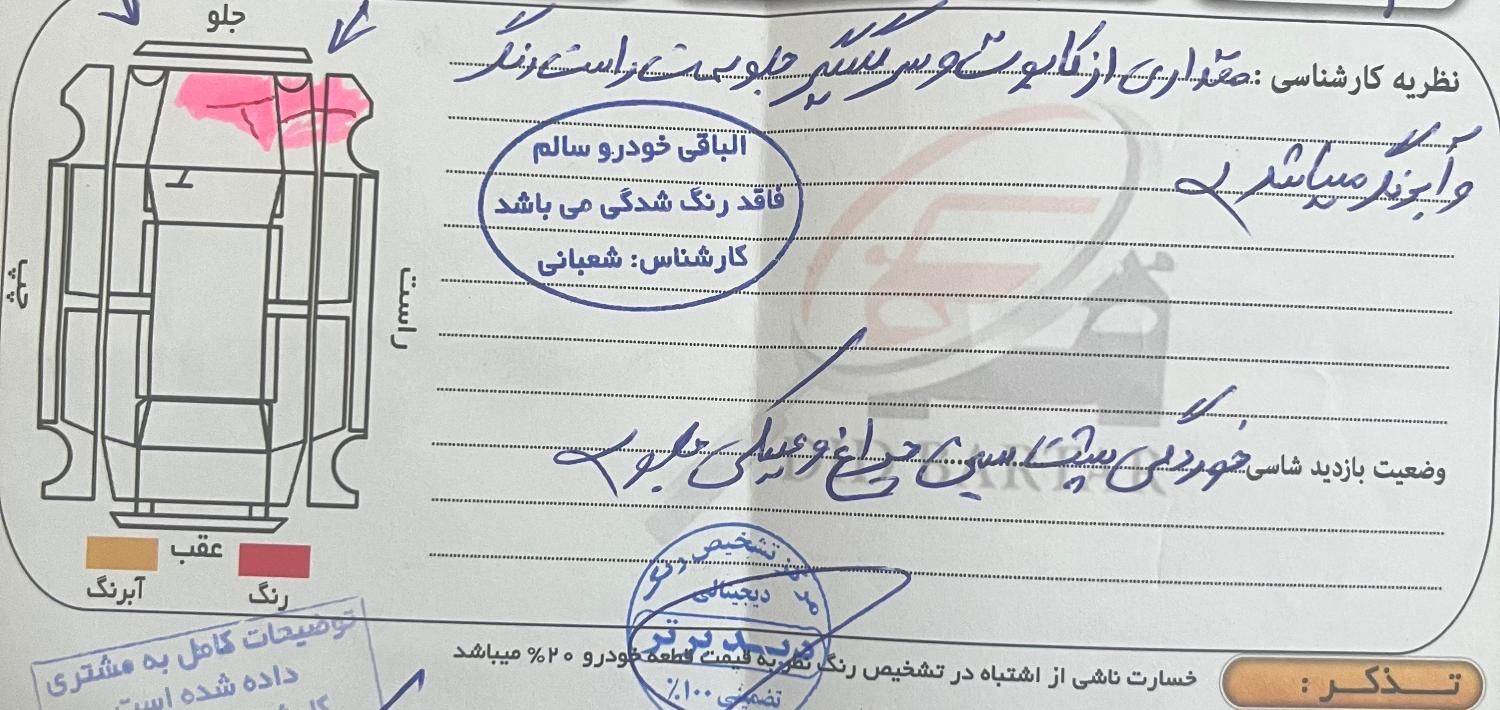 جلو
نظریه کارشناسی : مقداری از کاپوت و سر گلگیر جلو سمت راست رنگ
و آبرنگ میباشد
الباقی خودرو سالم
فاقد رنگ شدگی می باشد
کارشناس: شعبانی
چپ
راست
وضعیت بازدید شاسی خوردگی پشت سینی چراغ و عینکی جلو
عقب
آبرنگ
رنگ
تشخیص
دیجیتالی
دید برتر
تضمینی ۱۰۰٪
توضیحات کامل به مشتری
داده شده است
تذکر :
خسارت ناشی از اشتباه در تشخیص رنگ نظر به قیمت قطعه خودرو ۲۰% میباشد